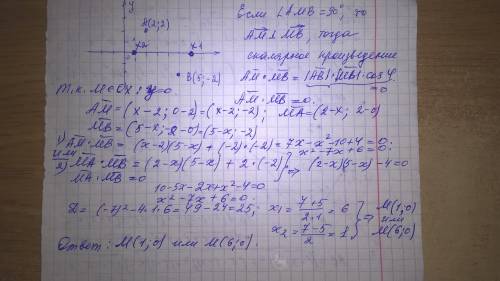 y
A(2;2)
x2
x1
B(5;-2)
Если ∠AMB=90°, то
AM⊥MB, тогда
скалярное произведение
AM·MB=|AB|·|MB|·cos φ
=0
Т.к. M∈Ox: y=0
AM·MB=0.
AM=(x-2; 0-2)=(x-2;-2); MA=(2-x; 2-0)
MB=(5-x;-2-0)=(5-x;-2)
1) AM·MB=(x-2)(5-x)+(-2)·(-2)=7x-x²-10+4=0;
x²-7x+6=0
или
2) MA·MB=(2-x)(5-x)+2·(-2) } ⇒ (2-x)(5-x)-4=0
MA·MB=0
10-5x-2x+x²-4=0
x²-7x+6=0
D=(-7)²-4·1·6=49-24=25; x₁=(7+5)/(2·1)=6 } ⇒ M(1;0)
или
x₂=(7-5)/2=1 M(6;0)
Ответ: M(1;0) или M(6;0).